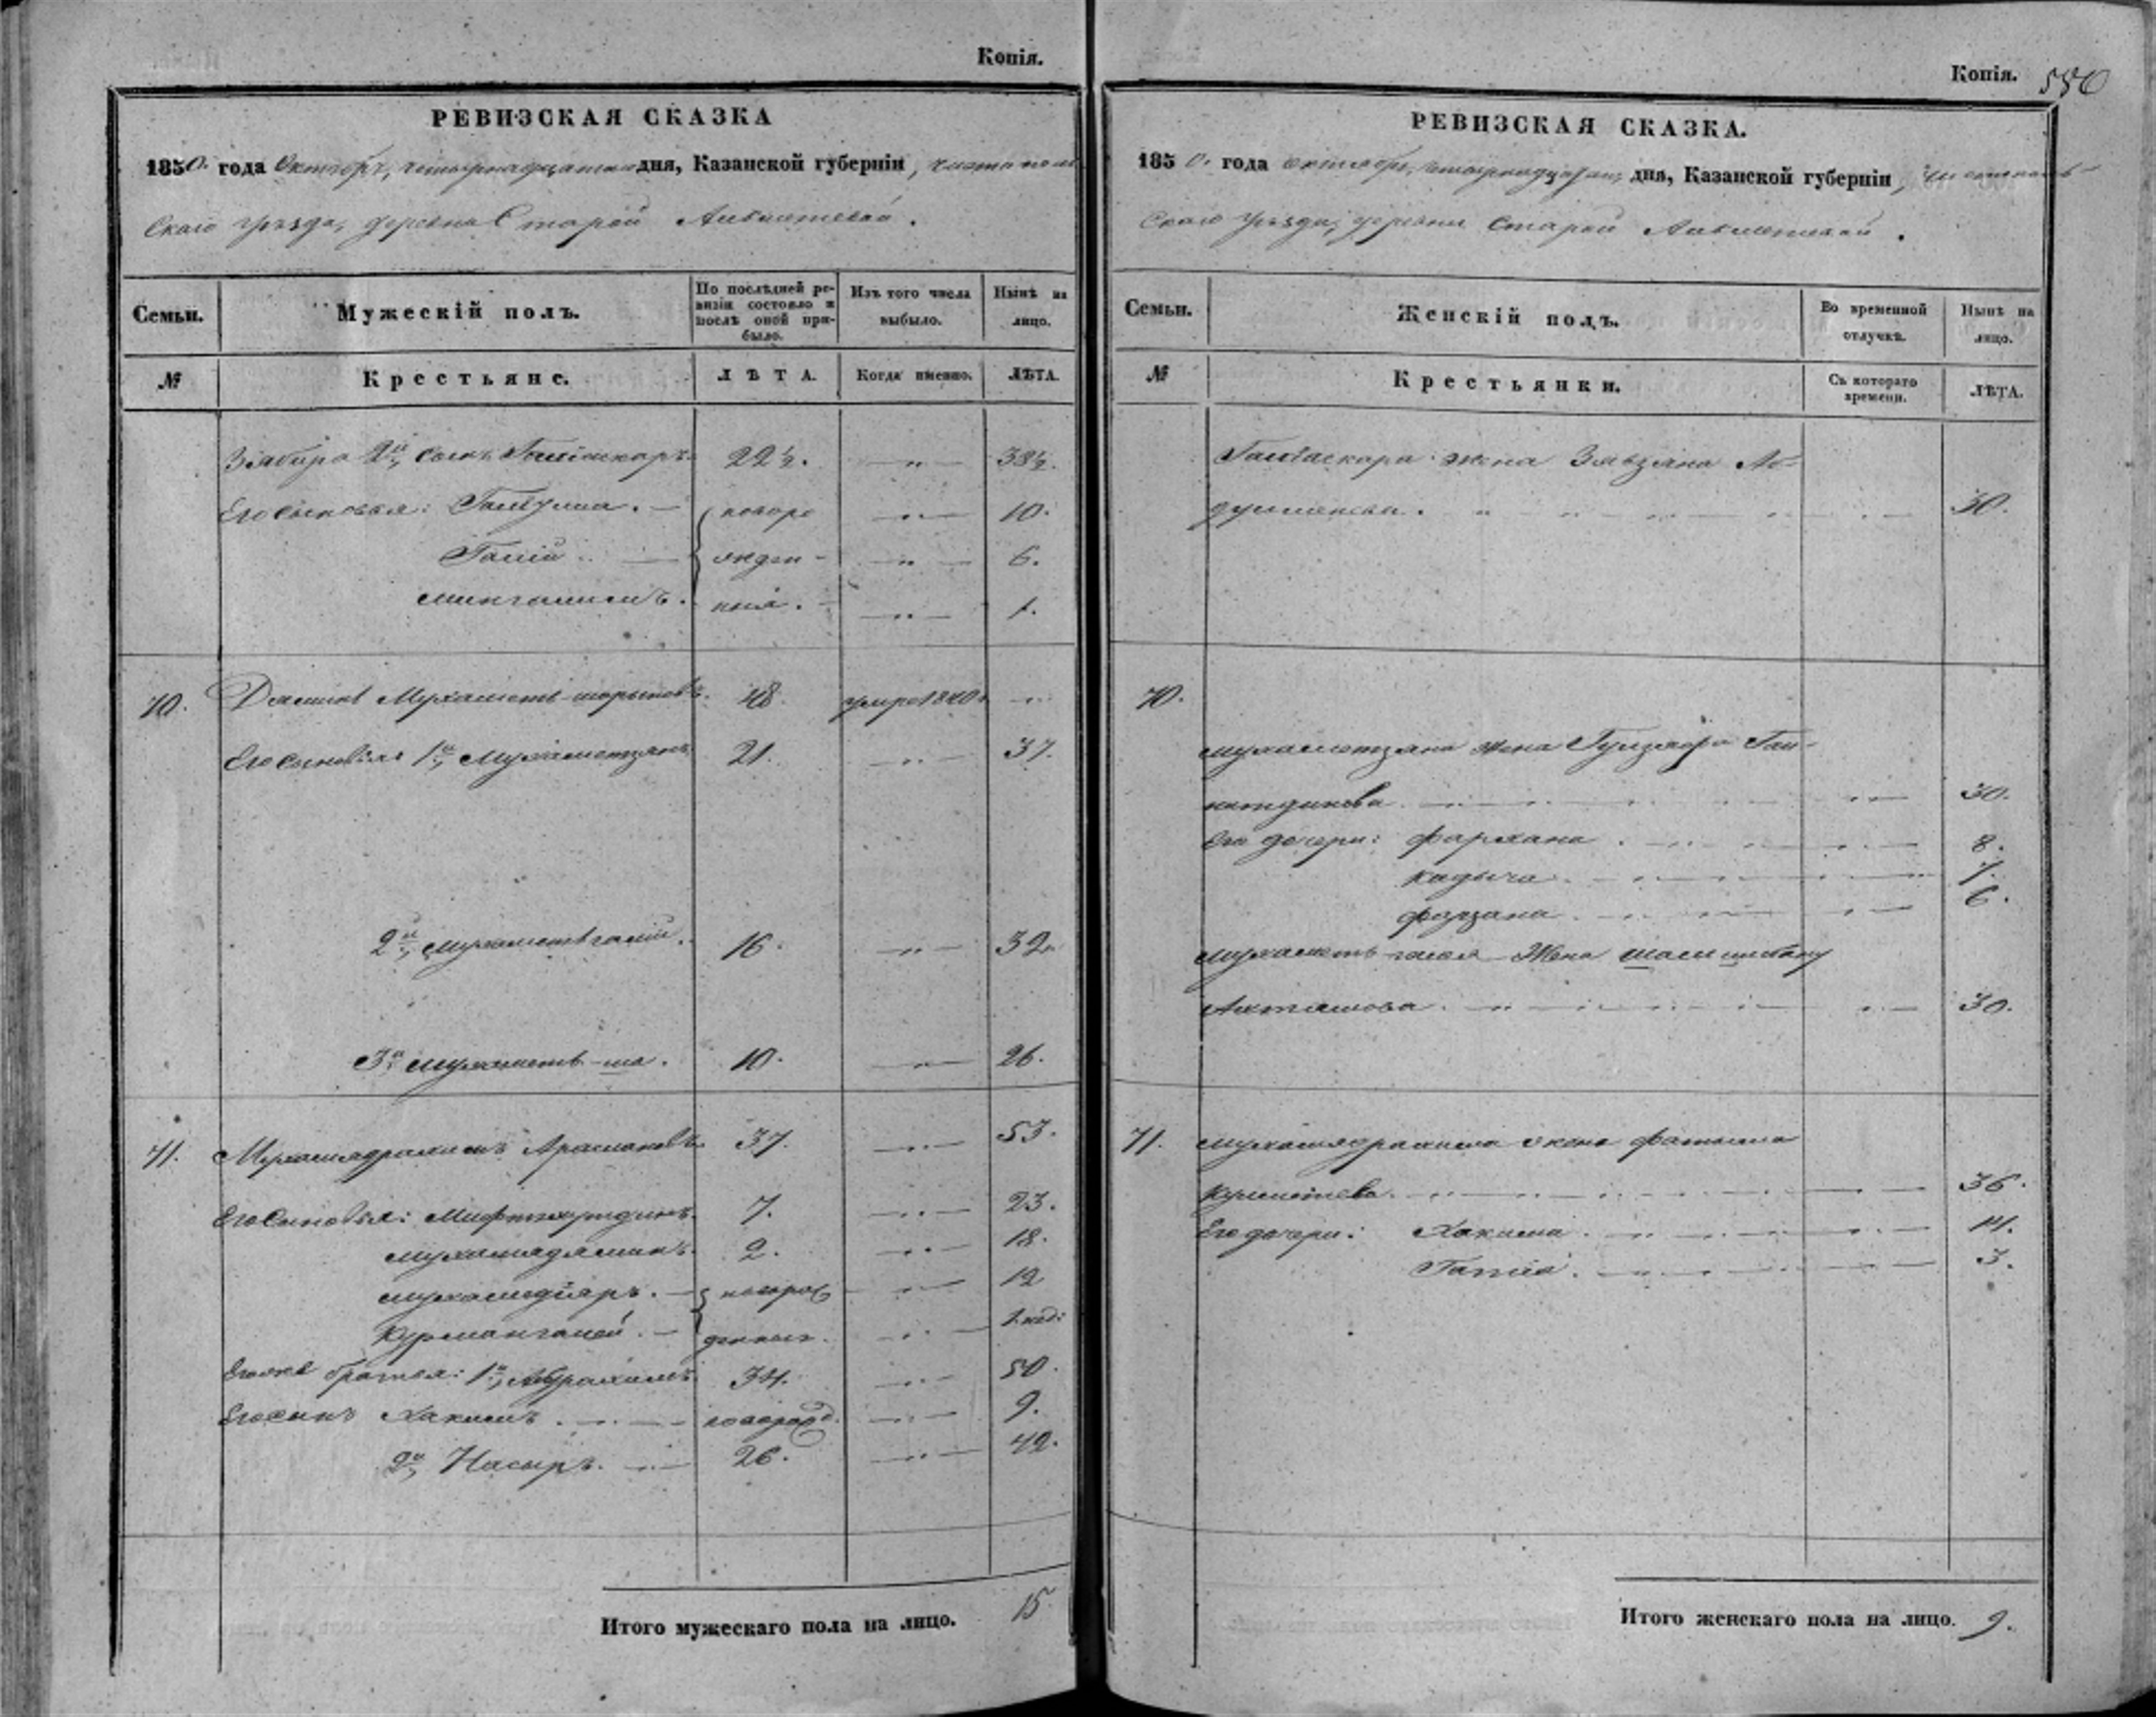 Копія.
РЕВИЗСКАЯ СКАЗКА
1850. года Октября, четырнадцатаго дня, Казанской губерніи, Чистополь
скаго уѣзда, деревни Старой
Семьи.
Мужескій полъ.
По послѣдней ре-
визіи состояло и
послѣ оной при-
было.
Изъ того числа
выбыло.
Нынѣ на
лицо.
№
Крестьяне.
ЛѢТА.
Когда именно.
ЛѢТА.
Зябира 2й, сынъ Галіаскаръ 22½. 38½.
Его сыновья: новоро 10.
Галій жден- 6.
Мингалимъ. ныя. 1.
70. Мухаметъ 48. умре 1840.
Его сыновья: 1й, Мухаметзянъ 21. 37.
2й, Мухаметьгалій. 16. 32.
3й Мухаметь-ша. 10. 26.
71. Мухамядрахимъ 37. 53.
Его сыновья: Мифтахутдинъ. 7. 23.
Мухамядяминъ. 2. 18.
Мухамедіяръ. новорож 12
Курмангалей. денныя. 1 нед:
Его же братья: 1й, 34. 50.
Его сынъ Хакимъ. новорожд. 9.
2й, Насыръ. 26. 42.
Итого мужескаго пола на лицо. 15.
Копія. 550
РЕВИЗСКАЯ СКАЗКА.
1850. года Октября, четырнадцатаго дня, Казанской губерніи, Чистополь-
скаго уѣзда, деревни Старой
Семьи.
Женскій полъ.
Во временной
отлучкѣ.
Нынѣ на
лицо.
№
Крестьянки.
Съ котораго
времени.
ЛѢТА.
Галіаскара жена
30.
70.
Мухаметзяна жена
30.
Его дочери: Фархана 8.
Кадыча 7.
Фарзана 6.
Мухаметь-галея жена
Ахтямова. 30.
71. Мухамядрахима жена Фатыма
36.
Его дочери: Хакима 14.
3.
Итого женскаго пола на лицо. 9.